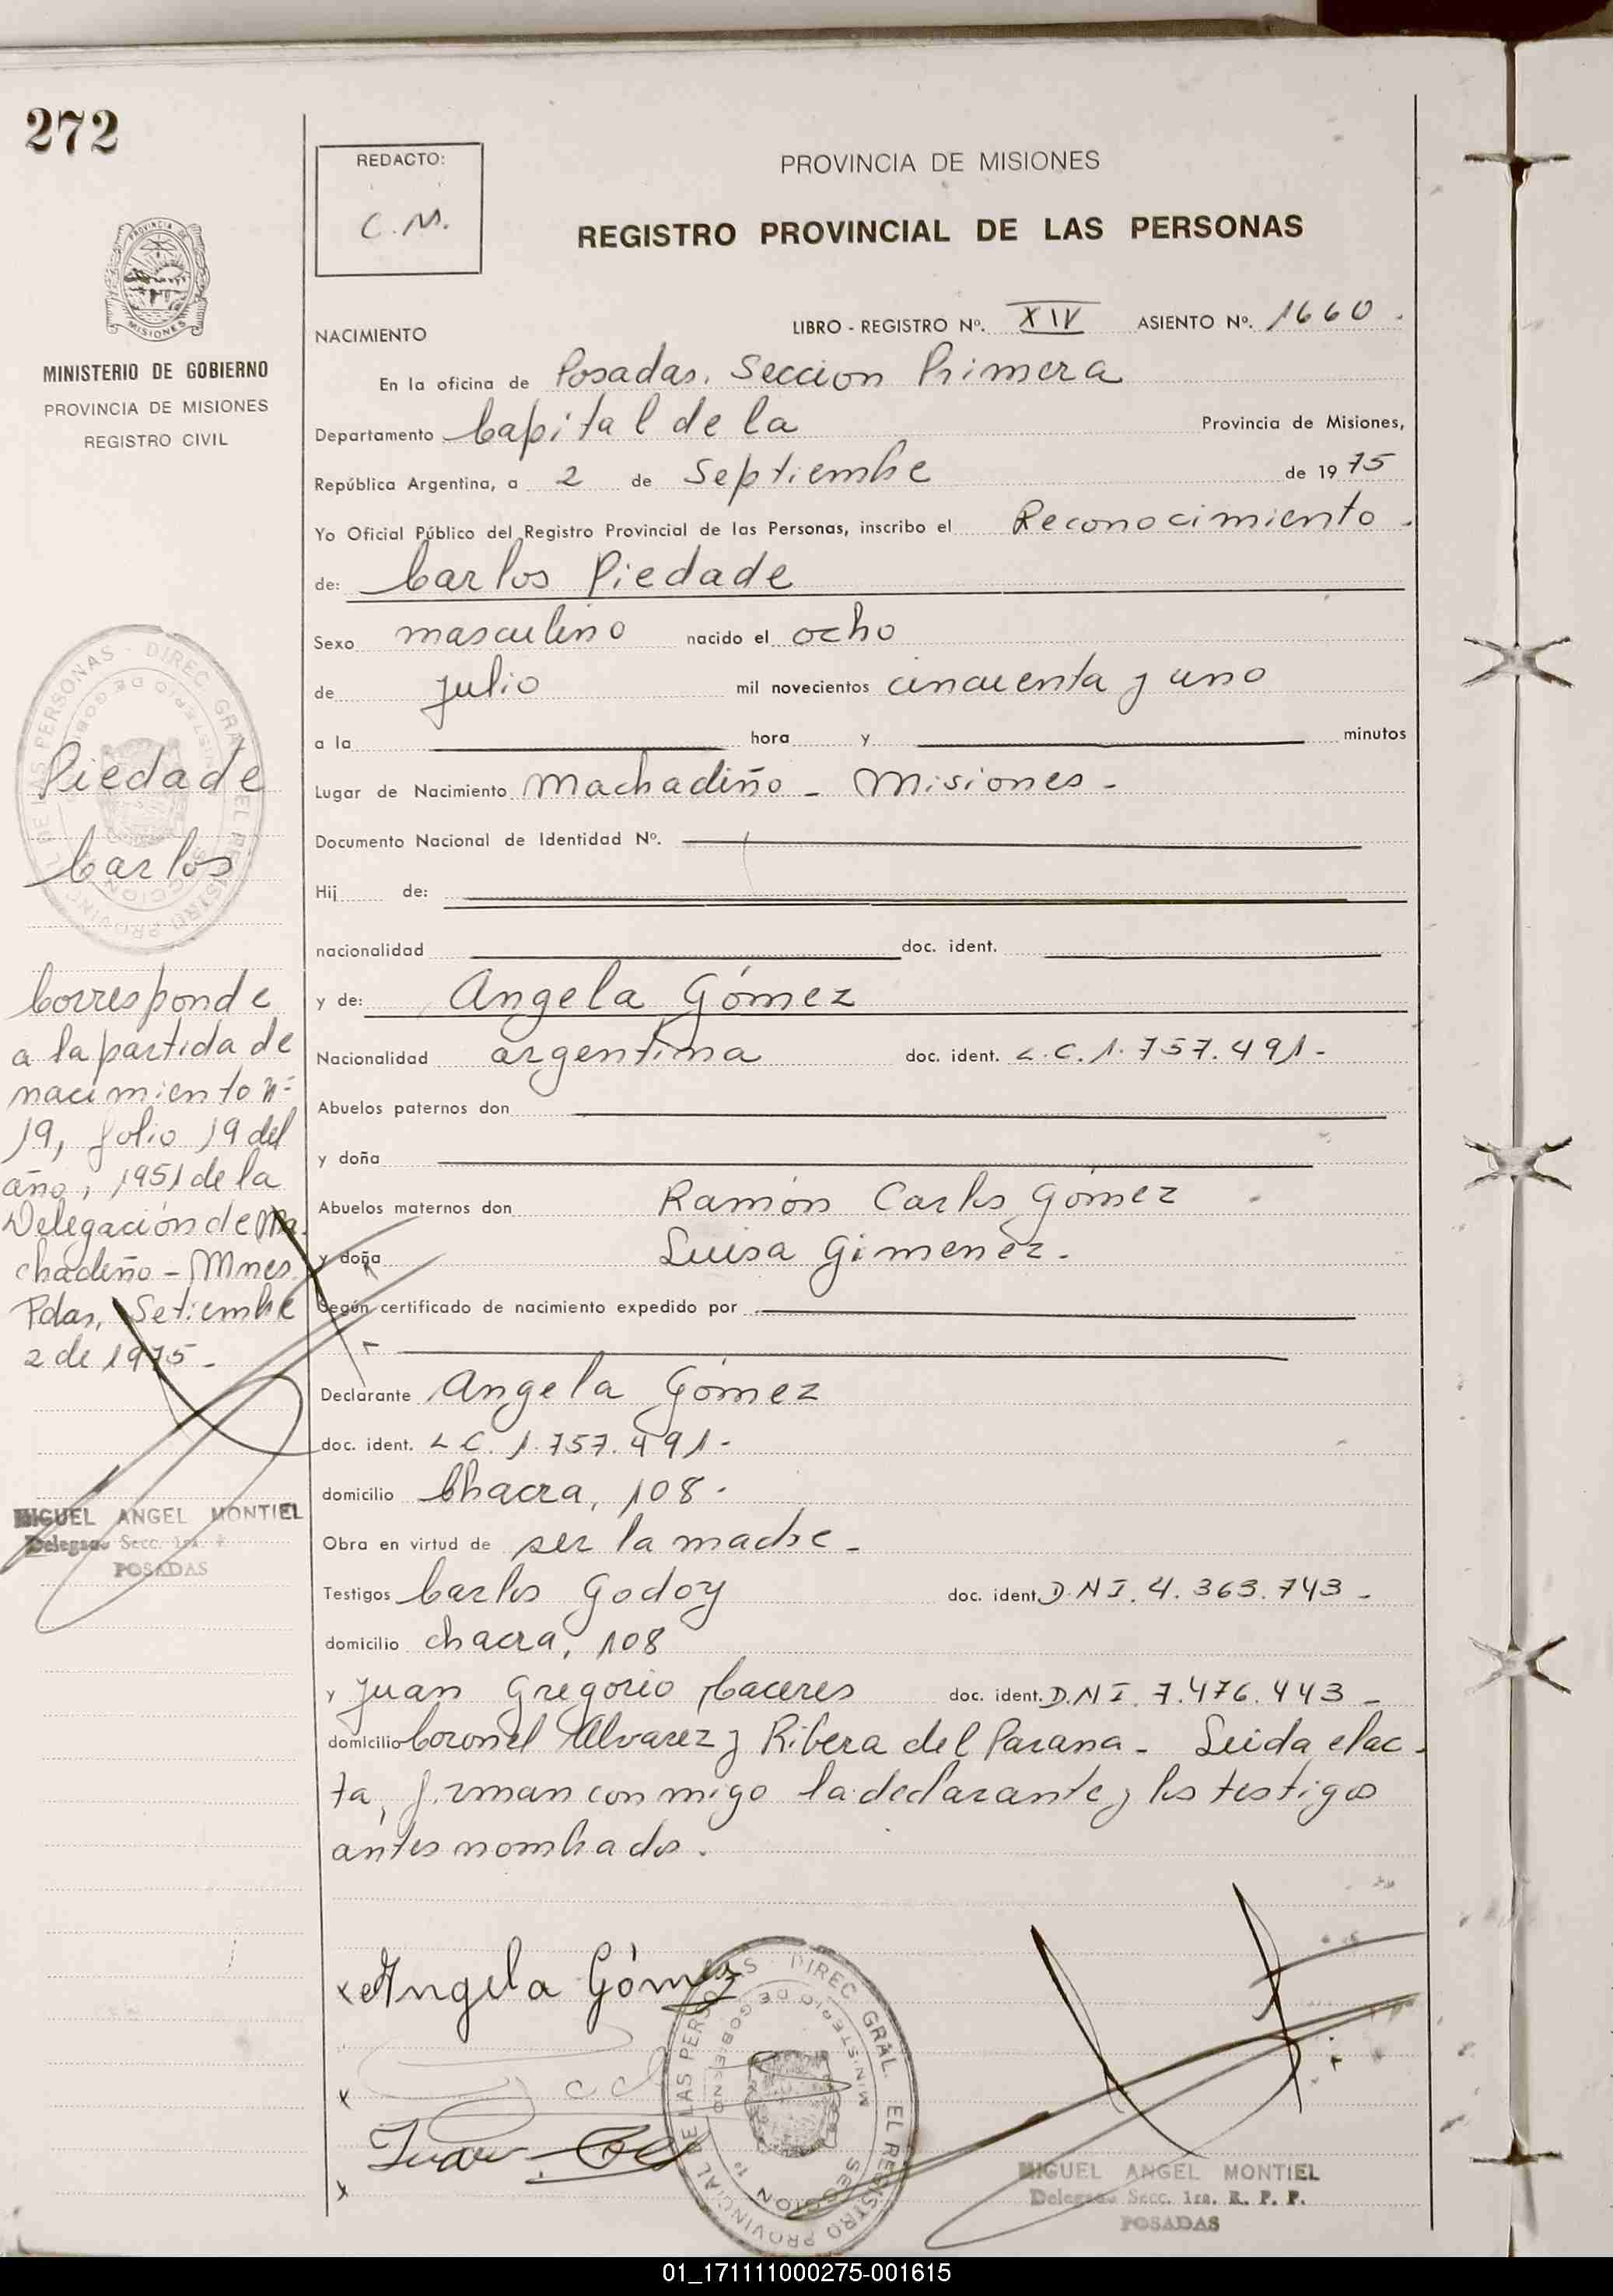 272
REDACTO:
C. M.
PROVINCIA DE MISIONES
REGISTRO PROVINCIAL DE LAS PERSONAS
PROVINCIA DE
MISIONES
MINISTERIO DE GOBIERNO
PROVINCIA DE MISIONES
REGISTRO CIVIL
NACIMIENTO LIBRO - REGISTRO Nº. XIV ASIENTO Nº. 1660.
En la oficina de Posadas. Seccion Primera
Departamento Capital de la Provincia de Misiones,
República Argentina, a 2 de Septiembre de 1975
Yo Oficial Público del Registro Provincial de las Personas, inscribo el Reconocimiento.
de: Carlos Piedade
Sexo masculino nacido el ocho
de julio mil novecientos cincuenta y uno
a la hora y minutos
Lugar de Nacimiento Machadiño - Misiones -
Documento Nacional de Identidad Nº.
Hij de:
nacionalidad doc. ident.
y de: Angela Gómez
Nacionalidad argentina doc. ident. L.C. 1.757.491-
Abuelos paternos don
y doña
Abuelos maternos don Ramón Carlos Gómez
y doña Luisa Gimenez.
Según certificado de nacimiento expedido por
Declarante Angela Gómez
doc. ident. L C. 1.757.491-
domicilio Chacra, 108.
Obra en virtud de ser la madre -
Testigos Carlos Godoy doc. ident. D.N I. 4.363.743 -
domicilio chacra, 108
y Juan Gregorio Caceres doc. ident. D.N I. 7.476.443 -
domicilio Coronel Alvarez y Ribera del Parana - Leida el ac-
ta, firman conmigo la declarante y los testigos
antes nombrados.
Piedade
Carlos
Corresponde
a la partida de
nacimiento nº
19, folio 19 del
año, 1951 de la
Delegación de Ma
chadiño - Mnes.
Pdas, Setiembre
2 de 1975 -
MIGUEL ANGEL MONTIEL
Delegado Secc. 1ra
POSADAS
x Angela Gómez
x
Juan
x
DIREC. GRAL. DEL REGISTRO PROVINCIAL DE LAS PERSONAS
MINISTERIO DE GOBIERNO
SECCION 1º
MIGUEL ANGEL MONTIEL
Delegado Secc. 1ra. R. P. P.
POSADAS
01_171111000275-001615